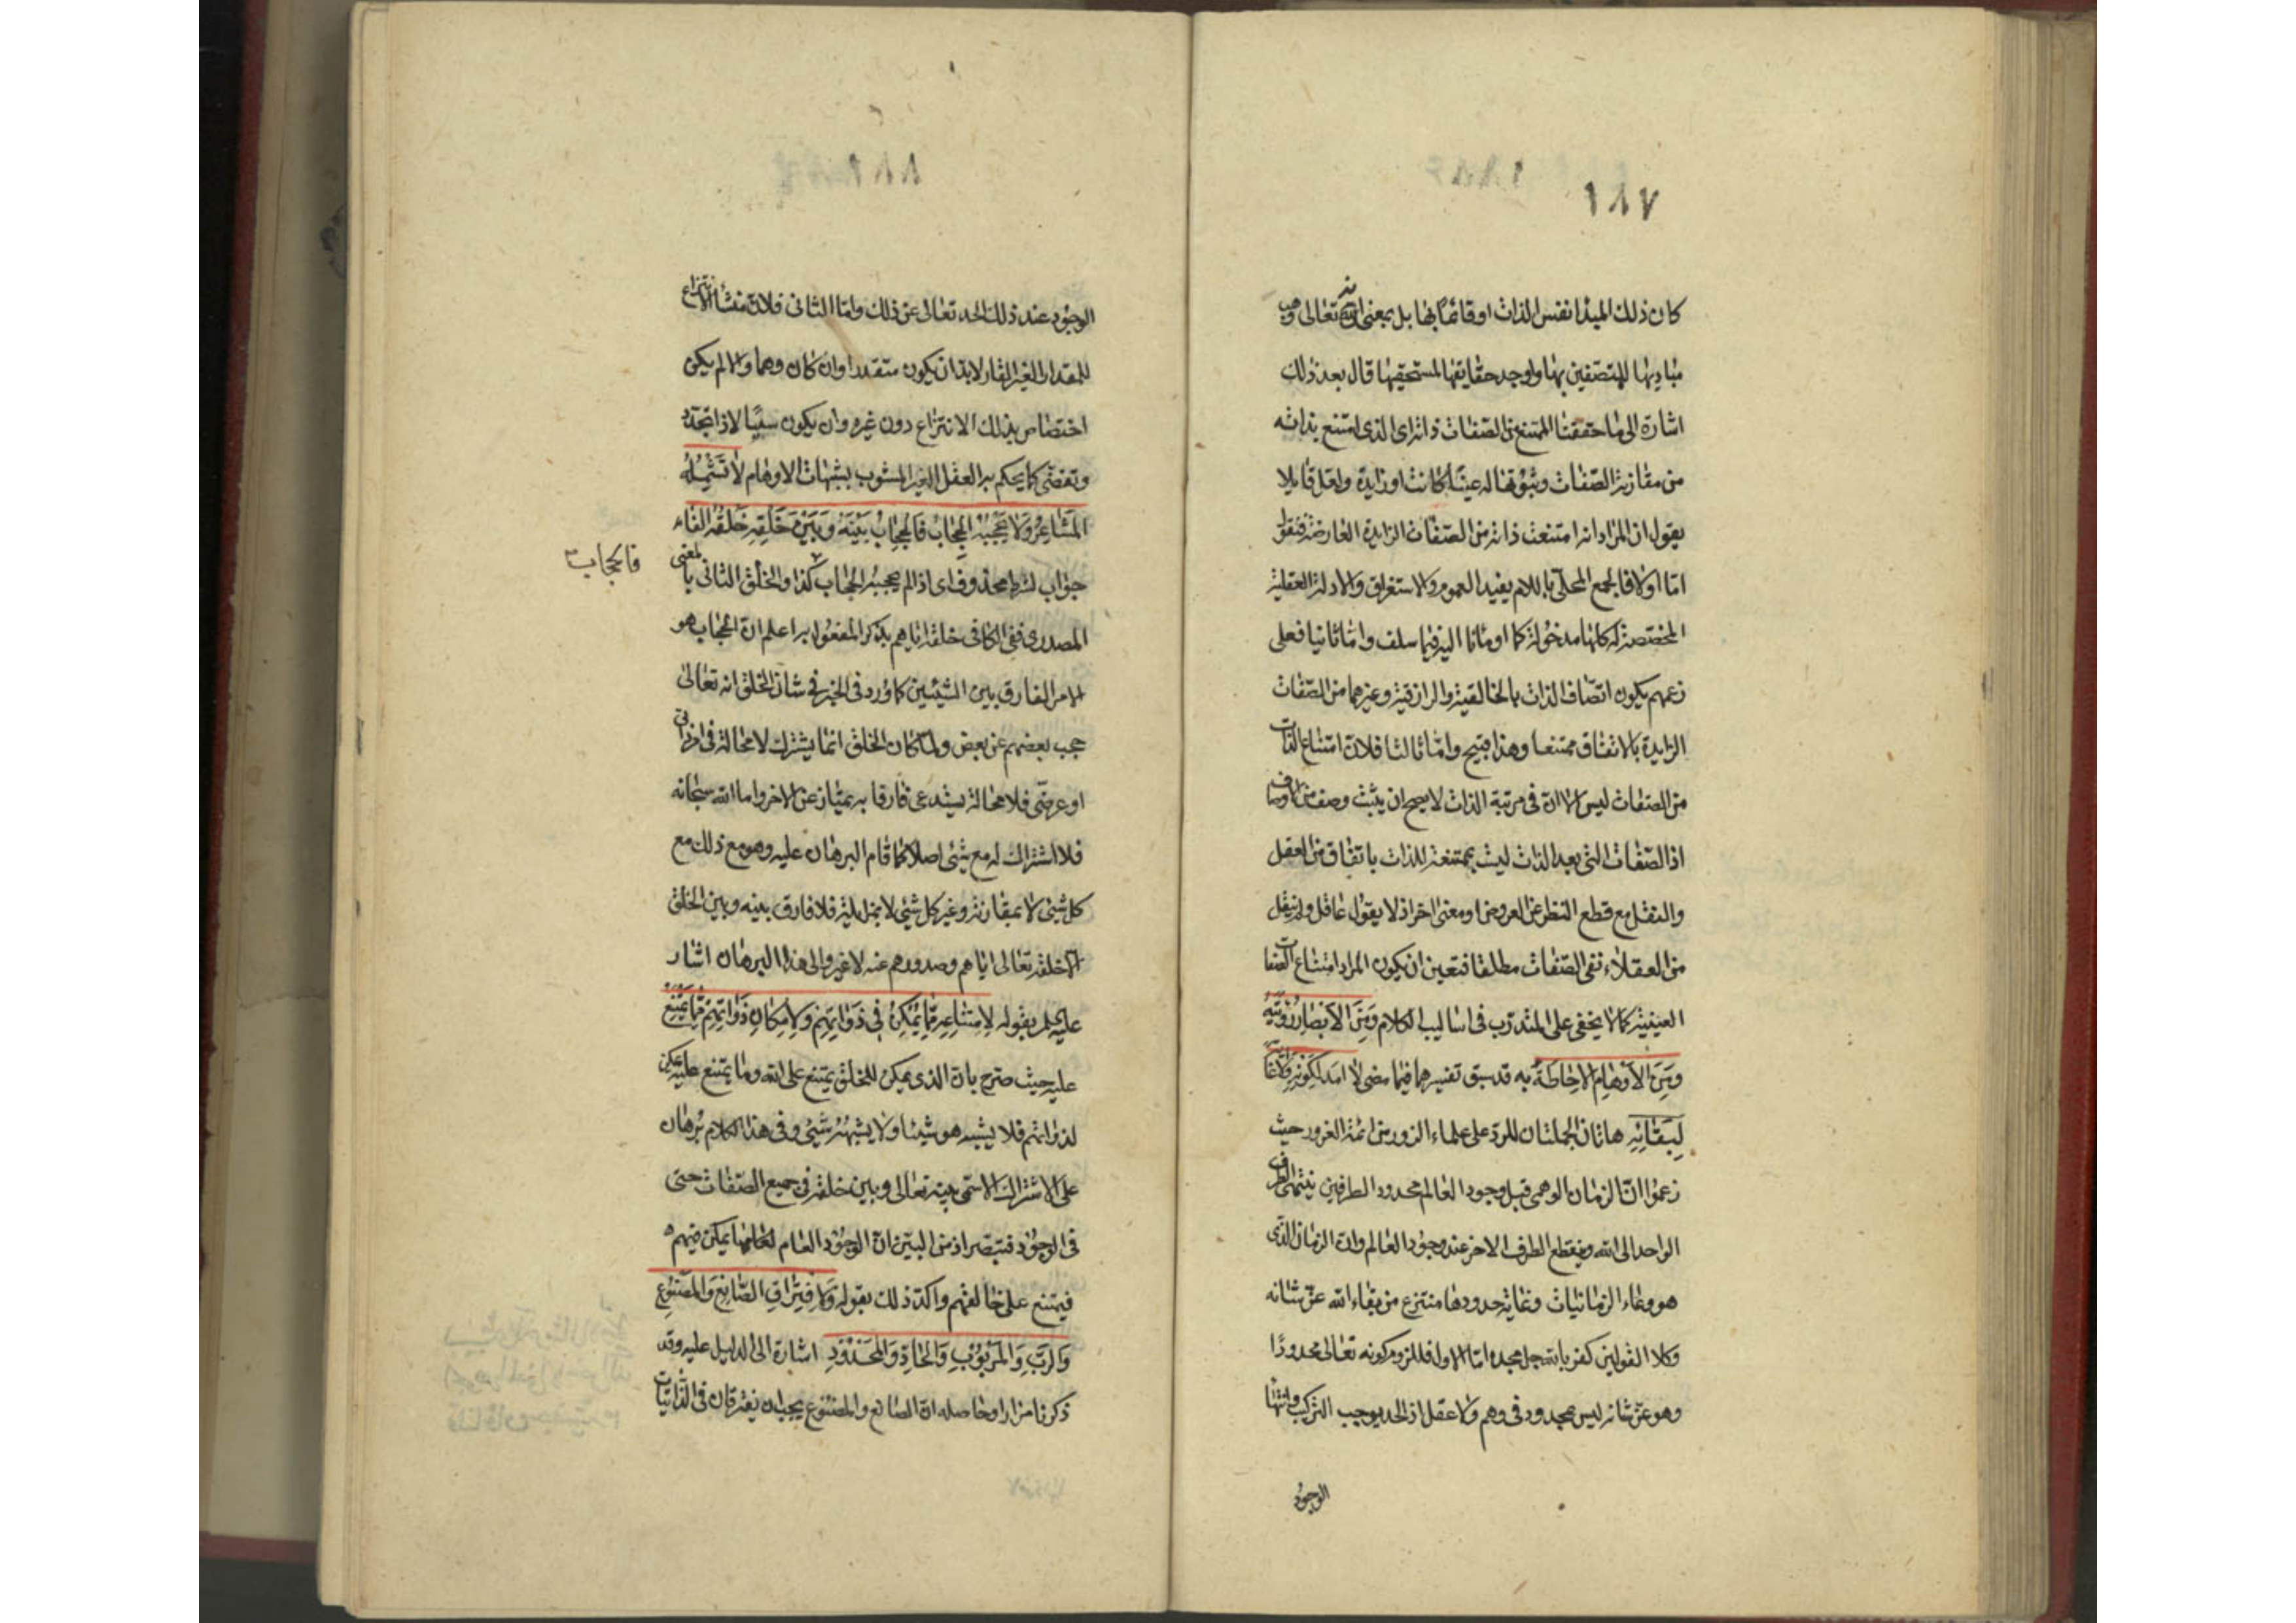 ١٨٧
كان ذلك المبدأ نفس الذات او قائمًا بها بل بمعنى انه تعالى وهب
مباديها للمتصفين بها واوجد حقايقها لمستحقيها قال بعد ذلك
اشارة الى ما حققنا الممتنع من الصفات ذاته اى الذى امتنع بذاته
من مقارنة الصفات وثبوتها له عينًا كانت او زايدة ولعل قايلا
يقول ان المراد انه امتنعت ذاته من الصفات الزايدة العارضة فنقول
امّا اولا فالجمع المحلّى باللام يفيد العموم والاستغراق والادلة العقلية
المخصصة له كلها مدخولة كما اومأنا اليه فيما سلف وامّا ثانيا فعلى
زعمهم يكون اتصاف الذات بالخالقية والرازقية وغيرهما من الصّفات
الزايدة بالاتفاق ممتنعا وهذا قبيح وامّا ثالثا فلانّ امتناع الذات
من الصفات ليس الا انّ فى مرتبة الذات لا يصح ان يثبت وصف من الاوصاف
اذ الصّفات التى بعد الذات ليست بممتنعة للذات باتفاق من العقل
والنقل مع قطع النظر عن العروض او معنى اخر اذ لا يقول عاقل ولم ينقل
من العقلاء نفى الصّفات مطلقا فتعين ان يكون المراد امتناع الصفات
العينية كما لا يخفى على المتدرّب فى اساليب الكلام وَمِنَ الاَبْصارِ رُؤْيَتِهِ
وَمِنَ الاَوْهامِ الاِحاطَةُ به قد سبق تفسيرهما فيما مضى لا اَمَدَ لِكَوْنِهِ وَلا غايَةَ
لِبَقائِهِ هاتان الجملتان للرد على علماء الزور من ائمة الغرور حيث
زعموا انّ الزمان الوهمى قبل وجود العالم محدود الطرفين ينتهى الطرف
الواحد الى الله وينقطع الطرف الاخر عند وجود العالم وان الزمان الذى
هو وعاء الزمانيات وغاية حدودها منتزع من بقاء الله عزّ شانه
وكلا القولين كفر بالله جل مجده امّا الاول فللزوم كونه تعالى محدودًا
وهو عزّ شانه ليس بمحدود فى وهم ولا عقل اذ الحد يوجب التركيب وانتهاء
الوجود
١٨٨
الوجود عند ذلك الحد تعالى عن ذلك وامّا الثانى فلانّ منشأ الانتزاع
للمقدار الغير القار لابدّ ان يكون متقدرا وان كان وهما والا لم يكن
اختصاص بذلك الانتزاع دون غيره وان يكون سيّالا ذا تجدّد
وتقضّى كما يحكم به العقل الغير المشوب بشبهات الاوهام لا تَشْمُلُهُ
المَشاعِرُ وَلا يَحْجُبُهُ الحِجابُ فَالحِجابُ بَيْنَهُ وَبَيْنَ خَلْقِهِ خَلْقُهُ الفاء
جواب لشرط محذوف اى اذا لم يحجبه الحجاب كذا والخلق الثانى بالمعنى
فالحجاب
المصدرى ففى الكافى خلقه اياهم بذكر المفعول به اعلم انّ الحجاب هو
الامر الفارق بين الشيئين كما ورد فى الخبر فى شان الخلق انه تعالى
حجب بعضهم عن بعض ولمّا كان الخلق انما يشترك لا محالة فى امر ذاتى
او عرضى فلا محالة يستدعى فارقا به يمتاز عن الاخر واما الله سبحانه
فلا اشتراك له مع شئ اصلا كما قام البرهان عليه وهو مع ذلك مع
كل شئ لا بمقارنة وغير كل شئ لا بمزايلة فلا فارق بينه وبين الخلق
الا خلقه تعالى اياهم وصدورهم عنه لا غير والى هذا البرهان اشار
عليه السلم بقوله لِامْتِناعِهِ مِمّا يُمْكِنُ فِى ذَواتِهِمْ وَلِامْكانِ ذَواتِهِمْ مِمّا يَمْتَنِعُ
عليه حيث صرّح بانّ الذى يمكن للخلق يمتنع على الله وما يمتنع عليه يمكن
لذواتهم فلا يشبه هو شيئا ولا يشبهه شئ وفى هذا الكلام برهان
على الاشتراك الاسمى بينه تعالى وبين خلقه فى جميع الصّفات حتى
فى الوجود فتبصّر اذ من البيّن انّ الوجود العام يمكن فيهم
فيمتنع على خالقهم واكد ذلك بقوله وَلِافْتِراقِ الصّانِعِ وَالمَصْنُوعِ
وَالرَبِّ وَالمَرْبُوبِ وَالحادِّ وَالمَحْدُودِ اشارة الى الدليل عليه وقد
ذكرنا مرارا وحاصله انّ الصانع والمصنوع يجب ان يفترقان فى الذّاتيات